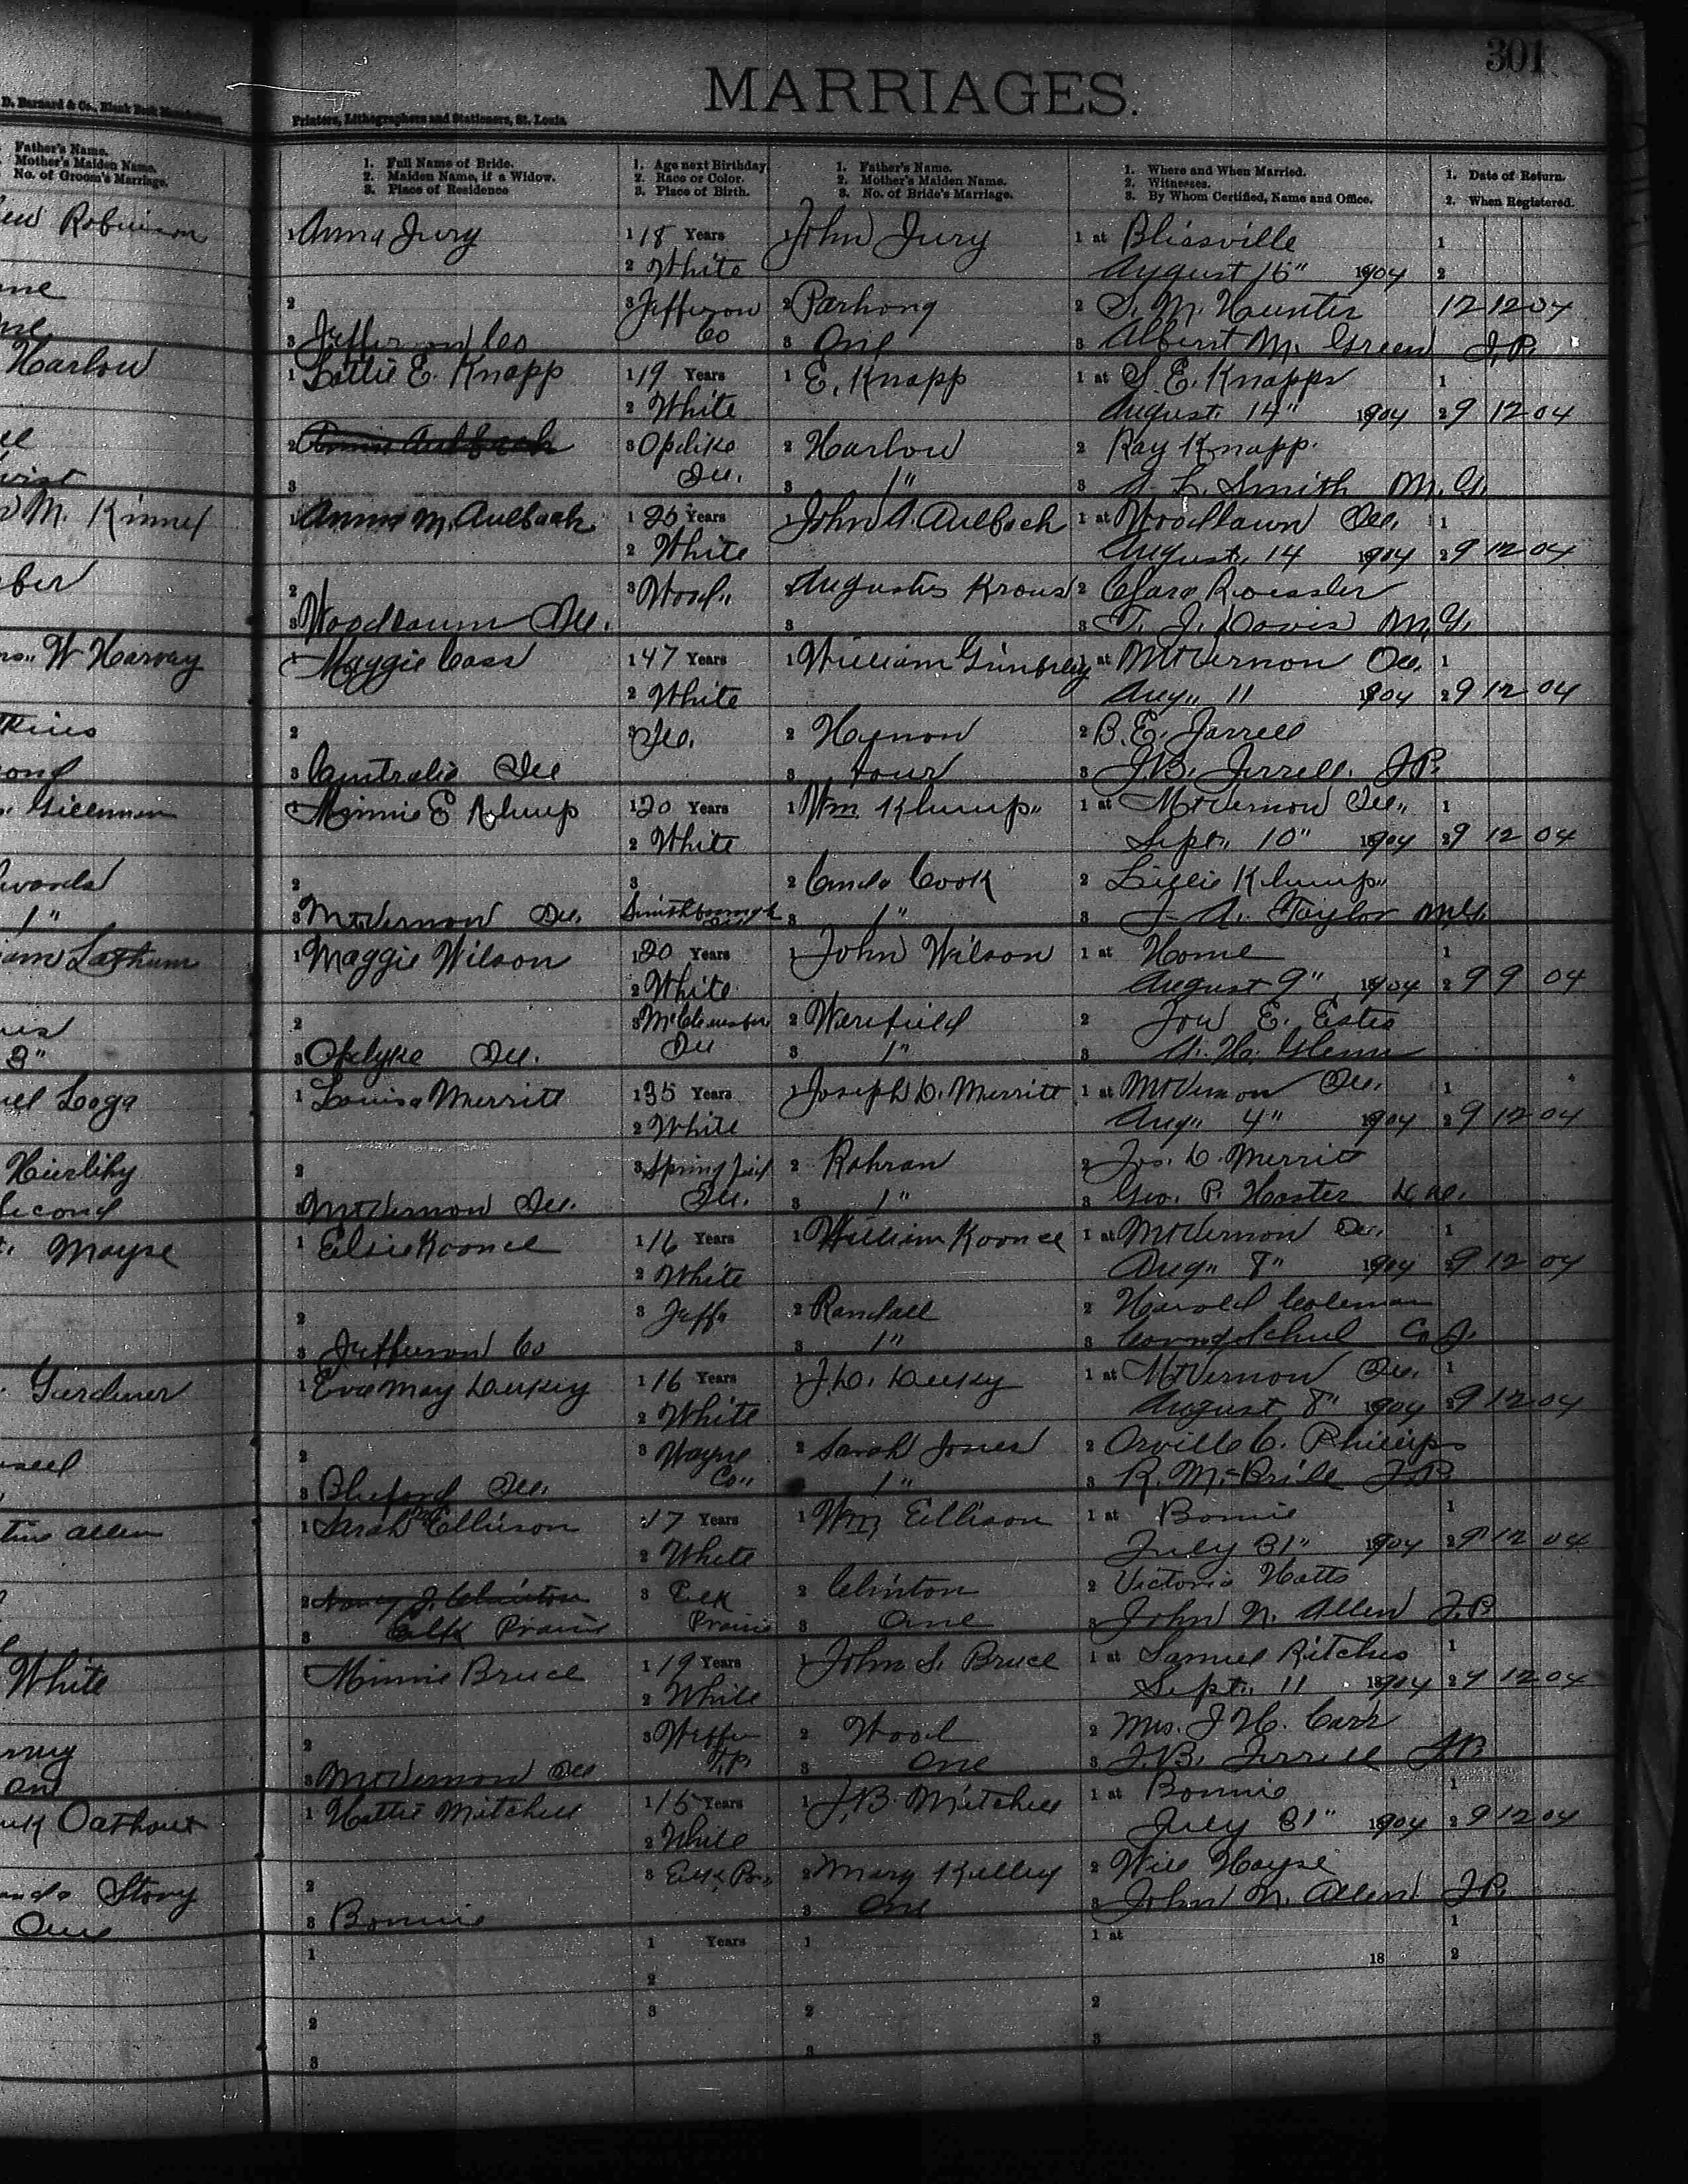 301
MARRIAGES.
D. Barnard & Co., Blank Book
Printers, Lithographers and Stationers, St. Louis.
Father's Name.
Mother's Maiden Name.
No. of Groom's Marriage.
1. Full Name of Bride.
2. Maiden Name, if a Widow.
3. Place of Residence
1. Age next Birthday
2. Race or Color.
3. Place of Birth.
1. Father's Name.
2. Mother's Maiden Name.
3. No. of Bride's Marriage.
1. Where and When Married.
2. Witnesses.
3. By Whom Certified, Name and Office.
1. Date of Return.
2. When Registered.
Robinson
1 Anna Jury 1 18 Years 1 John Jury 1 at Blissville 1
2 White August 15" 1904 2
2 3 Jefferson 2 Parhong 2 S. M. Hunter 12 12 04
3 Jefferson Co Co 3 One 3 Albert M. Green J.P.
Harlow
1 Lottie E. Knapp 1 19 Years 1 E. Knapp 1 at S. E. Knapps 1
2 White August 14" 1904 2 9 12 04
2 3 Opdike 2 Harlow 2 Ray Knapp
3 Ill. 3 1" 3 L. Smith M.G.
M. Kinney
1 Annie M. Aulbach 1 25 Years 1 John A. Aulbach 1 at Woodlawn Ill. 1
2 White August, 14 1904 2 9 12 04
2 3 Wood,, 2 Augustus Kraus 2 Clara Roessler
3 Woodlawn Ill. 3 3 T. J. Davis M.G.
W Harvey
1 Maggie Cass 1 47 Years 1 William 1 at Mt Vernon Ill. 1
2 White Aug,, 11 1904 2 9 12 04
2 3 Ill. 2 2 B. E. Jarrell
3 Centralia Ill 3 Four 3 J.B. Jerrell. J.P.
1 Minnie E Klump 1 20 Years 1 Wm Klump,, 1 at Mt Vernon Ill,, 1
2 White Sept,, 10" 1904 2 9 12 04
2 3 2 Cook 2 Lillie Klump,,
3 Mt Vernon Ill. Smithborough 3 1" 3 J. A. Taylor M.G.
Latham
1 Maggie Wilson 1 20 Years 1 John Wilson 1 at Home 1
2 White August 9" 1904 2 9 9 04
2 3 2 Warfield 2 E. Estes
3 Opdyke Ill. Ill 3 1" 3
Loga
1 Louisa Merritt 1 35 Years 1 Joseph D. Merritt 1 at Mt Vernon Ill. 1
2 White Aug,, 4" 1904 2 9 12 04
2 3 Springfield 2 Rohran 2 Jos. D. Merritt
3 Mt Vernon Ill. Ill. 3 1" 3 Geo. P. Hoster
Second
Mayse
1 Elsie Koonce 1 16 Years 1 William Koonce 1 at Mt Vernon Ill. 1
2 White Aug,, 8" 1904 2 9 12 04
2 3 Jeff 2 Randall 2 Harold Coleman
3 Jefferson Co 3 1" 3 Conrad Schul Co J.
Gardiner
1 Eva May 1 16 Years 1 J.D. 1 at Mt Vernon Ill. 1
2 White August 8" 1904 2 9 12 04
2 3 Wayne 2 Sarah Jones 2 Orville C. Phillips
3 Bluford Ill. Co,, 1" 3 R. McBride J.P.
Allen
1 Sarah Ellison 17 Years 1 Wm Ellison 1 at Bonnie 1
2 White July 31" 1904 2 9 12 04
2 Nancy J. Clinton 3 Elk 2 Clinton 2 Victoria Hatts
3 Elk Prairie Prairie 3 One 3 John N. Allen J.P.
White
1 Minnie Bruce 1 19 Years 1 John S. Bruce 1 at Samuel Ritches 1
2 White Sept,, 11 1904 2 9 12 04
2 3 2 Wood 2 Mrs. J H. Carr
3 Mt Vernon Ill 3 One 3 J.B. Jerrell J.P.
Oathout
1 Hattie Mitchell 1 15 Years 1 J.B. Mitchell 1 at Bonnie 1
2 White July 31" 1904 2 9 12 04
Story
2 3 Elk 2 Mary Kelley 2 Will Hayse
One
3 Bonnie 3 One 3 John N. Allen J.P.
1 1 Years 1 1 at 1
2 18 2
2 3 2 2
3 3 3